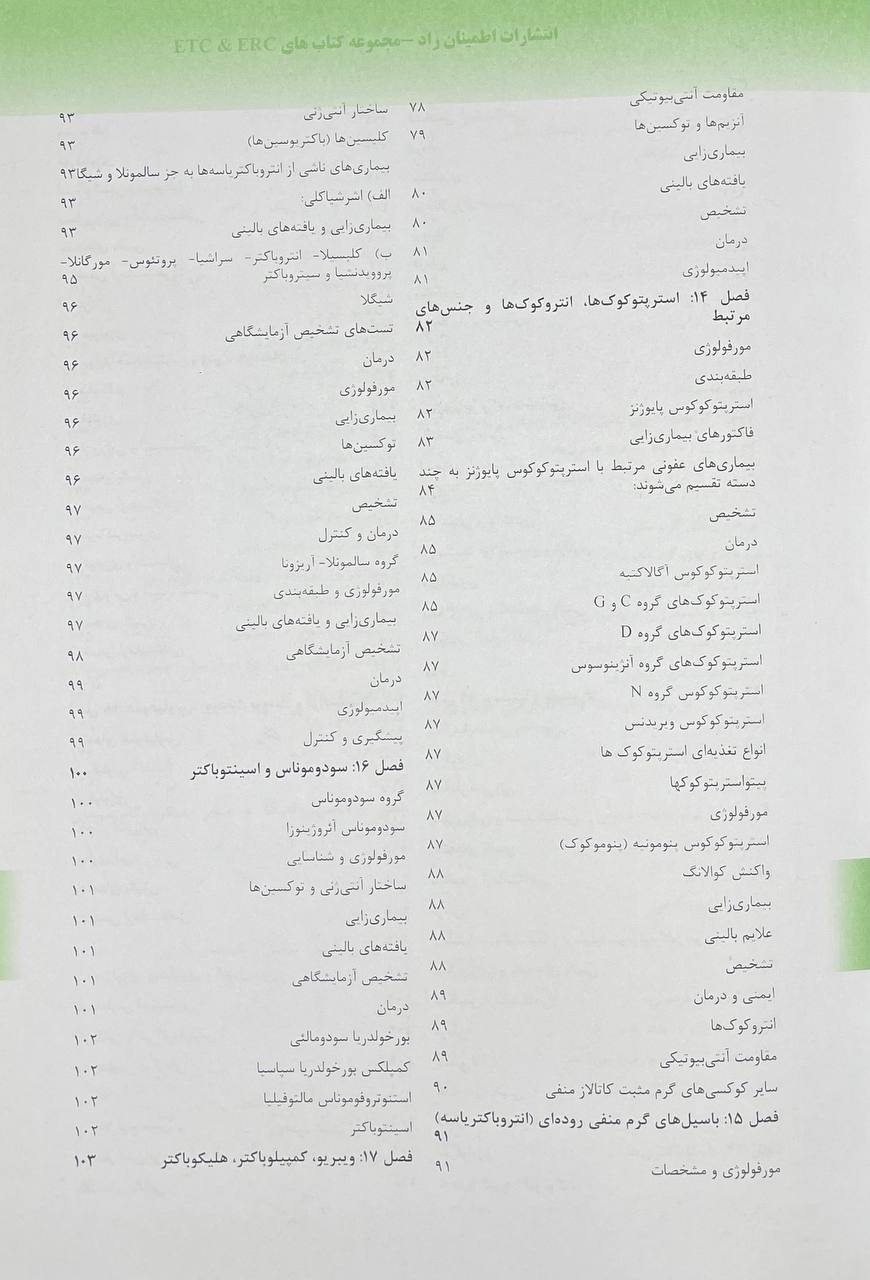 انتشارات اطمینان راد –مجموعه کتاب های ETC & ERC
مقاومت آنتی‌بیوتیکی ۷۸
آنزیم‌ها و توکسین‌ها ۷۹
بیماری‌زایی
یافته‌های بالینی ۸۰
تشخیص ۸۰
درمان ۸۱
اپیدمیولوژی ۸۱
فصل ۱۴: استرپتوکوک‌ها، انتروکوک‌ها و جنس‌های
مرتبط ۸۲
مورفولوژی ۸۲
طبقه‌بندی ۸۲
استرپتوکوکوس پایوژنز ۸۲
فاکتورهای بیماری‌زایی ۸۳
بیماری‌های عفونی مرتبط با استرپتوکوکوس پایوژنز به چند
دسته تقسیم می‌شوند: ۸۴
تشخیص ۸۵
درمان ۸۵
استرپتوکوکوس آگالاکتیه ۸۵
استرپتوکوک‌های گروه C و G ۸۵
استرپتوکوک‌های گروه D ۸۷
استرپتوکوک‌های گروه آنژینوسوس ۸۷
استرپتوکوکوس گروه N ۸۷
استرپتوکوکوس ویریدنس ۸۷
انواع تغذیه‌ای استرپتوکوک ها ۸۷
پپتواسترپتوکوکها ۸۷
مورفولوژی ۸۷
استرپتوکوکوس پنومونیه (پنوموکوک) ۸۷
واکنش کوالانگ ۸۸
بیماری‌زایی ۸۸
علایم بالینی ۸۸
تشخیص ۸۸
ایمنی و درمان ۸۹
انتروکوک‌ها ۸۹
مقاومت آنتی‌بیوتیکی ۸۹
سایر کوکسی‌های گرم مثبت کاتالاز منفی ۹۰
فصل ۱۵: باسیل‌های گرم منفی روده‌ای (انتروباکتریاسه)
۹۱
مورفولوژی و مشخصات ۹۱
ساختار آنتی‌ژنی ۹۳
کلیسین‌ها (باکتریوسین‌ها) ۹۳
بیماری‌های ناشی از انتروباکتریاسه‌ها به جز سالمونلا و شیگا ۹۳
الف) اشرشیاکلی: ۹۳
بیماری‌زایی و یافته‌های بالینی ۹۳
ب) کلبسیلا- انتروباکتر- سراشیا- پروتئوس- مورگانلا-
پروویدنشیا و سیتروباکتر ۹۵
شیگلا ۹۶
تست‌های تشخیص آزمایشگاهی ۹۶
درمان ۹۶
مورفولوژی ۹۶
بیماری‌زایی ۹۶
توکسین‌ها ۹۶
یافته‌های بالینی ۹۶
تشخیص ۹۷
درمان و کنترل ۹۷
گروه سالمونلا- آریزونا ۹۷
مورفولوژی و طبقه‌بندی ۹۷
بیماری‌زایی و یافته‌های بالینی ۹۷
تشخیص آزمایشگاهی ۹۸
درمان ۹۹
اپیدمیولوژی ۹۹
پیشگیری و کنترل ۹۹
فصل ۱۶: سودوموناس و اسینتوباکتر ۱۰۰
گروه سودوموناس ۱۰۰
سودوموناس آئروژینوزا ۱۰۰
مورفولوژی و شناسایی ۱۰۰
ساختار آنتی‌ژنی و توکسین‌ها ۱۰۱
بیماری‌زایی ۱۰۱
یافته‌های بالینی ۱۰۱
تشخیص آزمایشگاهی ۱۰۱
درمان ۱۰۱
بورخولدریا سودومالئی ۱۰۲
کمپلکس بورخولدریا سپاسیا ۱۰۲
استنوتروفوموناس مالتوفیلیا ۱۰۲
اسینتوباکتر ۱۰۲
فصل ۱۷: ویبریو، کمپیلوباکتر، هلیکوباکتر ۱۰۳